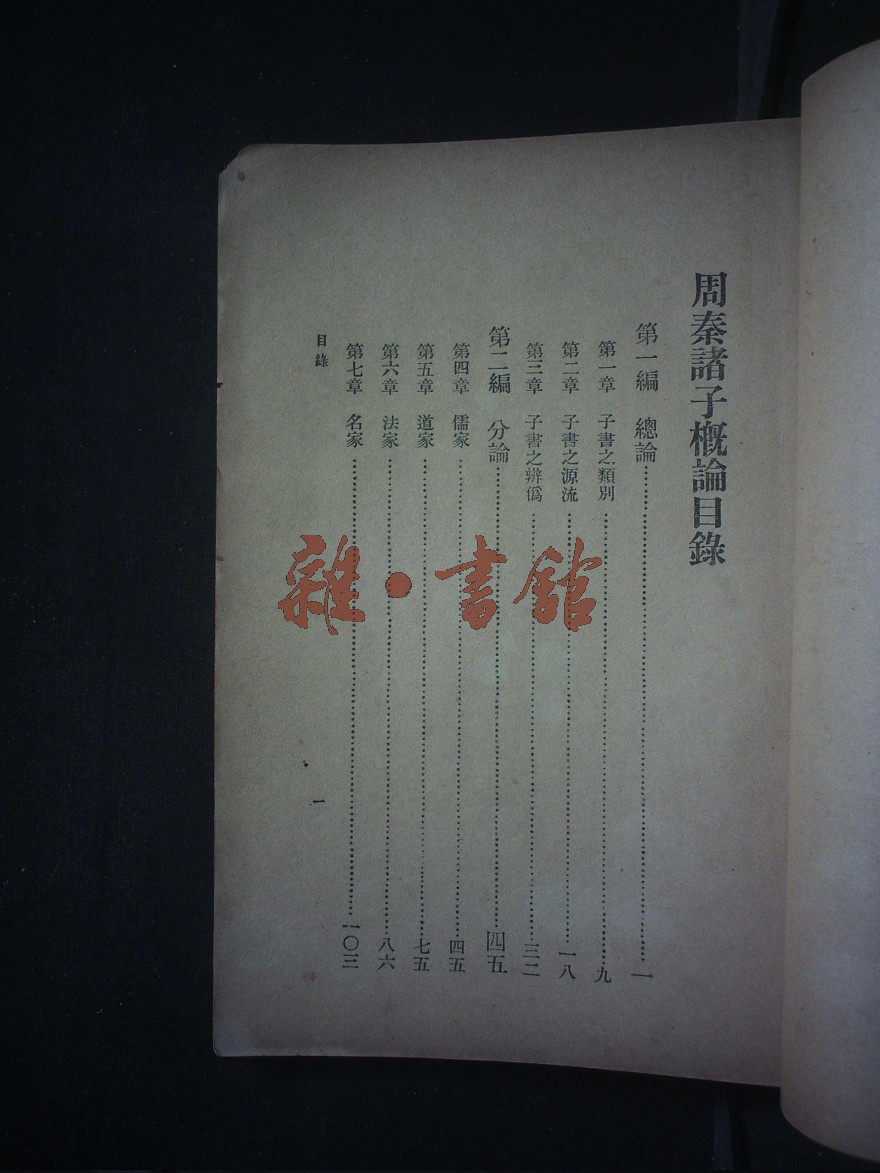 周秦諸子概論目錄
第一編 總論……一
第一章 子書之類別……九
第二章 子書之源流……一八
第三章 子書之辨僞……三二
第二編 分論……四五
第四章 儒家……四五
第五章 道家……七五
第六章 法家……八六
第七章 名家……一〇三
目錄
一
雜·書館